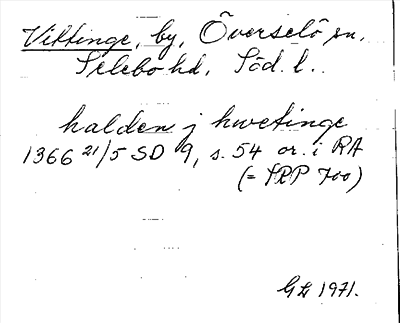 Vittinge, by, Överselö sn,
Selebo hd, Söd. l..
halden j hwetinge
1366 21/5 SD 9, s. 54 or. i RA
(= SRP 700)
1971.